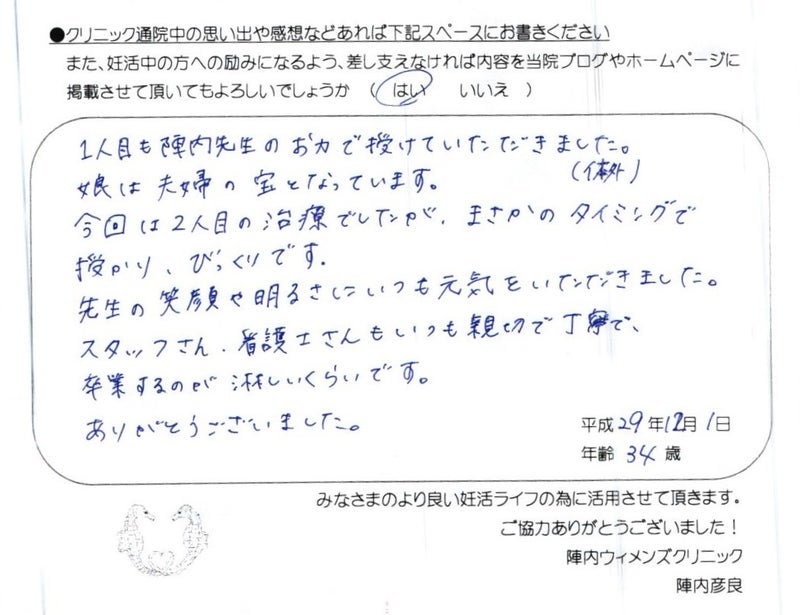 ●クリニック通院中の思い出や感想などあれば下記スペースにお書きください
また、妊活中の方への励みになるよう、差し支えなければ内容を当院ブログやホームページに
掲載させて頂いてもよろしいでしょうか（ はい いいえ ）
1人目も陣内先生のお力で授けていただきました。
（体外）
娘は夫婦の宝となっています。
今回は2人目の治療でしたが、まさかのタイミングで
授かり、びっくりです。
先生の笑顔や明るさにいつも元気をいただきました。
スタッフさん、看護士さんもいつも親切で丁寧で、
卒業するのが淋しいくらいです。
ありがとうございました。
平成29年12月1日
年齢 34歳
みなさまのより良い妊活ライフの為に活用させて頂きます。
ご協力ありがとうございました！
陣内ウィメンズクリニック
陣内彦良